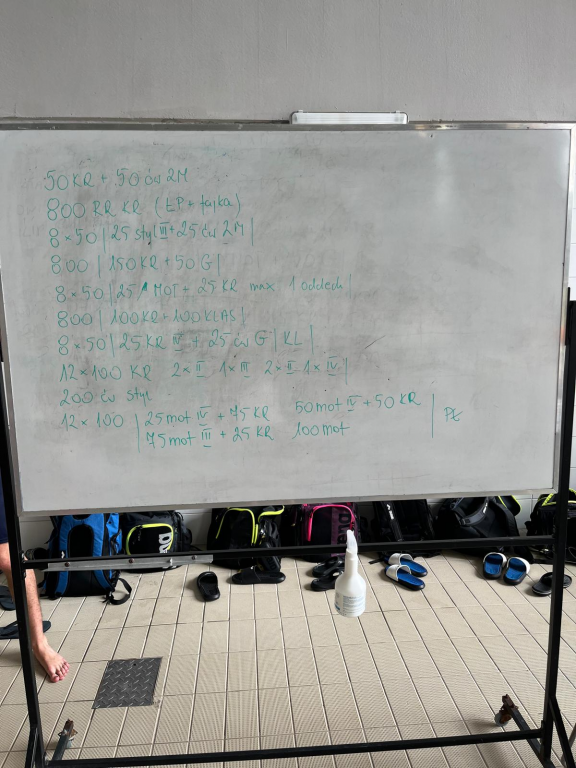 50 KR + 50 ćw 2M
800 RR KR (ŁP + fajka)
8 × 50 | 25 styl III + 25 ćw 2M |
800 | 150 KR + 50 G |
8 × 50 | 25 1 MOT + 25 KR max 1 oddech |
800 | 100 KR + 100 KLAS |
8 × 50 | 25 KR IV + 25 ćw G | KL |
12 × 100 KR 2 × II 1 × III 2 × II 1 × IV |
200 ćw styl
12 × 100 | 25 mot IV + 75 KR 50 mot IV + 50 KR |
75 mot III + 25 KR 100 mot